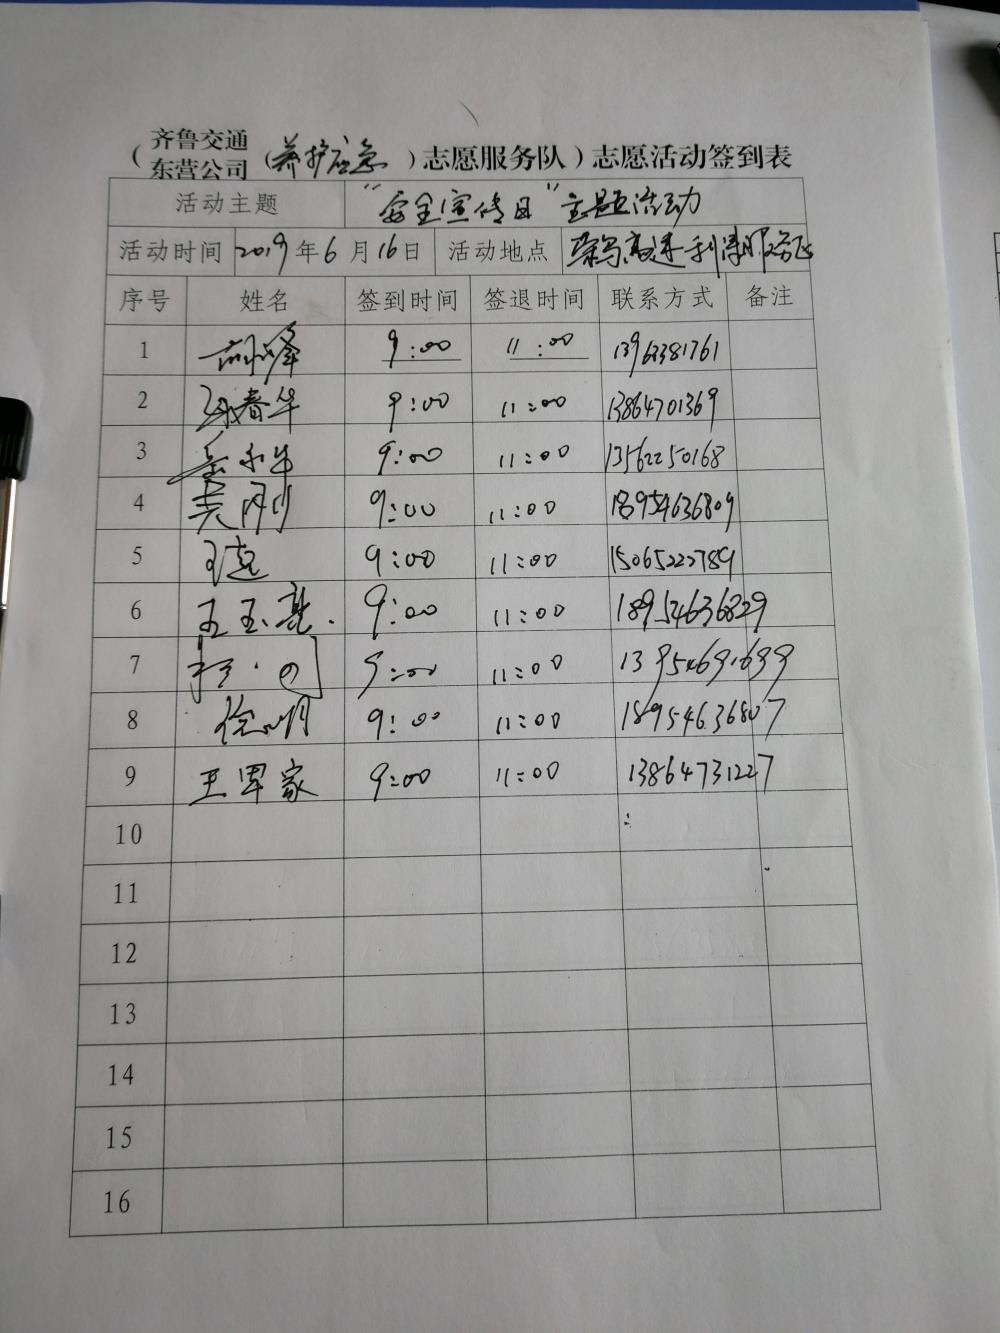 齐鲁交通
（ 东营公司 （养护应急）志愿服务队）志愿活动签到表
活动主题 “安全宣传日”主题活动
活动时间 2019年6月16日 活动地点 荣乌高速利津服务区
序号 姓名 签到时间 签退时间 联系方式 备注
1 9:00 11:00 13963381761
2 春华 9:00 11:00 13864701369
3 岳永生 9:00 11:00 13562250168
4 吴刚 9:00 11:00 18954636809
5 9:00 11:00 15065222789
6 王玉亮 9:00 11:00 18954636829
7 9:00 11:00
8 徐明 9:00 11:00 18954636807
9 王军家 9:00 11:00 13864731227
10
11
12
13
14
15
16